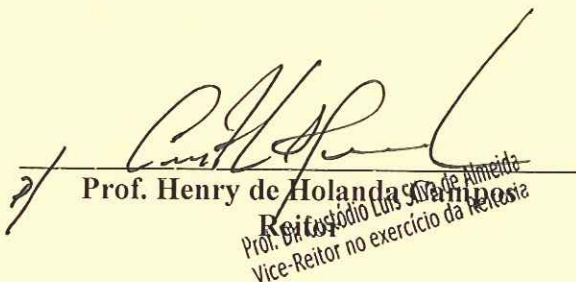 p/
Prof. Henry de Holanda Campos
Reitor
Prof. Dr. Custódio Luís Silva de Almeida
Vice-Reitor no exercício da Reitoria